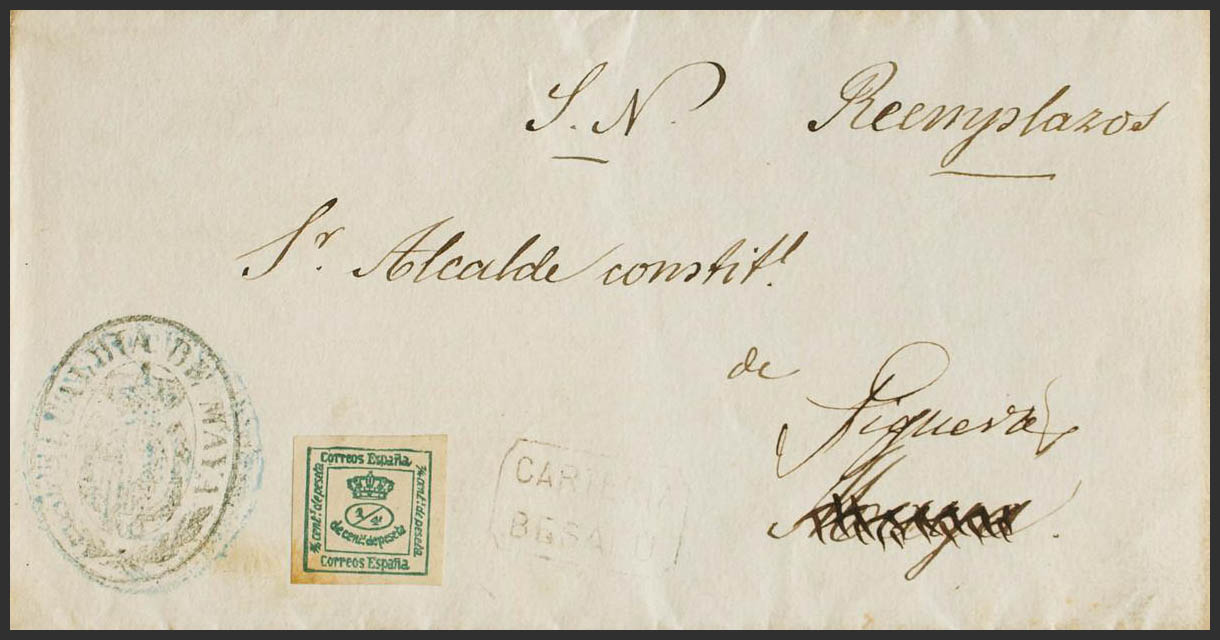 S. N. Reemplazos
Sr. Alcalde constitl.
de
Figueras
ALCALDIA DE MAYA
Correos España
¼ cent.s de peseta
¼ cent.s de peseta
1/4
de cent.s de peseta
Correos España
CARTERIA
BESALU